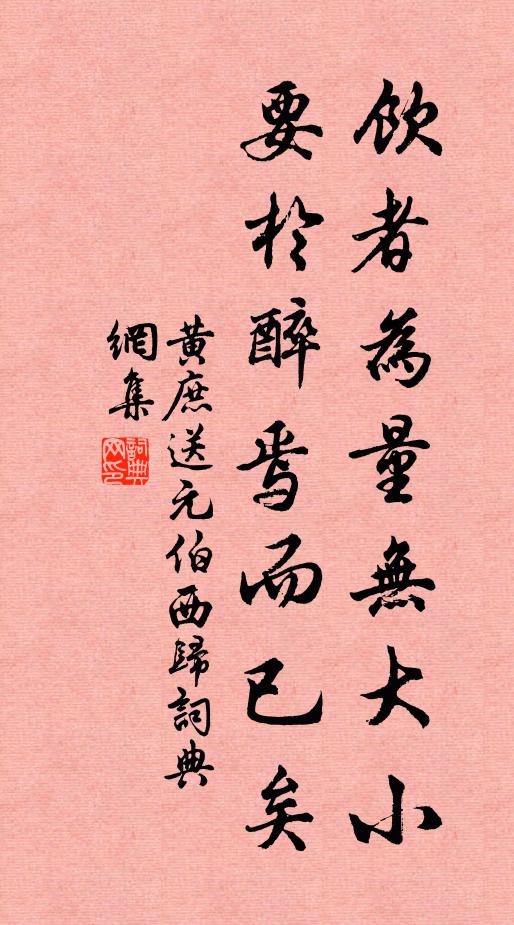 飲者為量無大小
要於醉焉而已矣
黃庶送元伯西歸詞典
網集
詞典網印